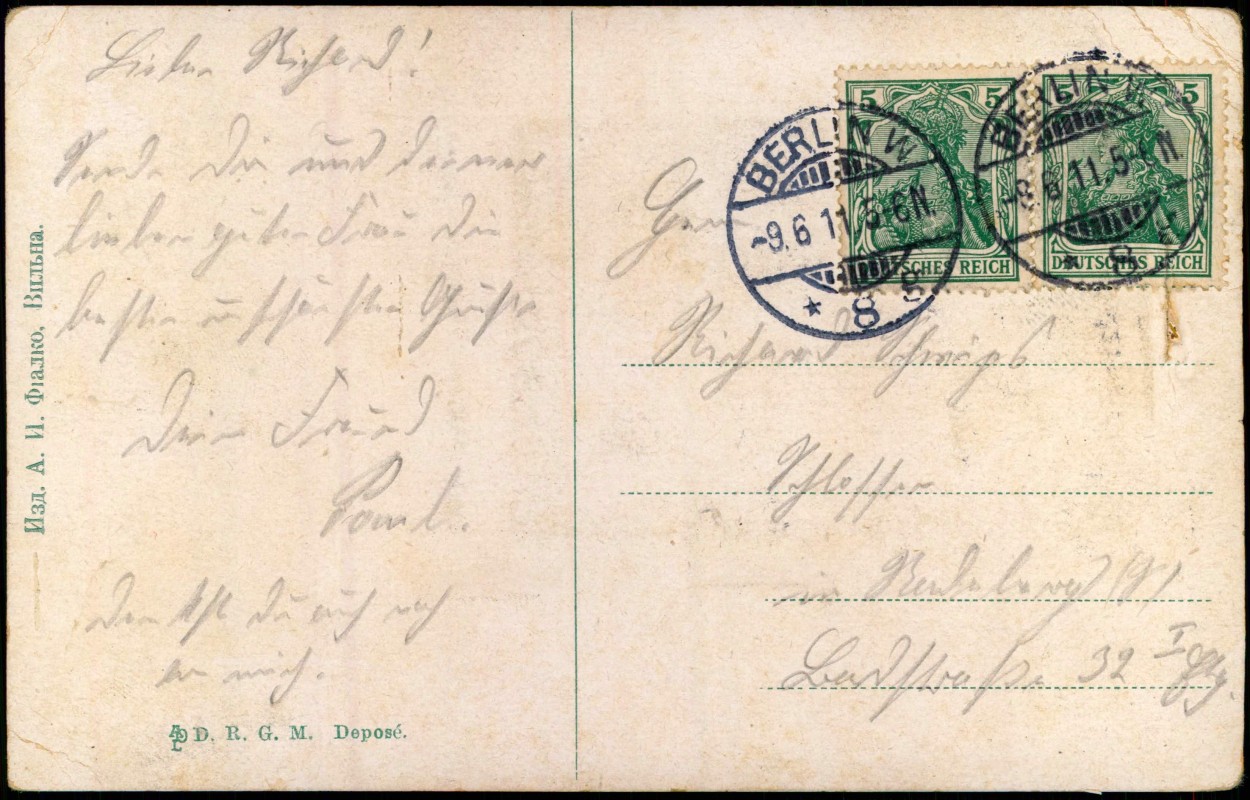 Lieber Richard!
Sende Dir und deiner
lieben guten Frau die
besten u schönsten Grüße
Dein Freund
Paul.
Denkst du auch noch
an mich.
D. R. G. M. Deposé.
Изд. А. И. Фіалко, Вильна.
5 5 5
DEUTSCHES REICH
DEUTSCHES REICH
BERLIN W
-9.6 11.5-6N.
* 8 g
BERLIN W
-9.6 11.5-6N.
* 8
Herrn
Richard
Schlosser
in Radeberg (S)
Badstraße 32 I Etg.